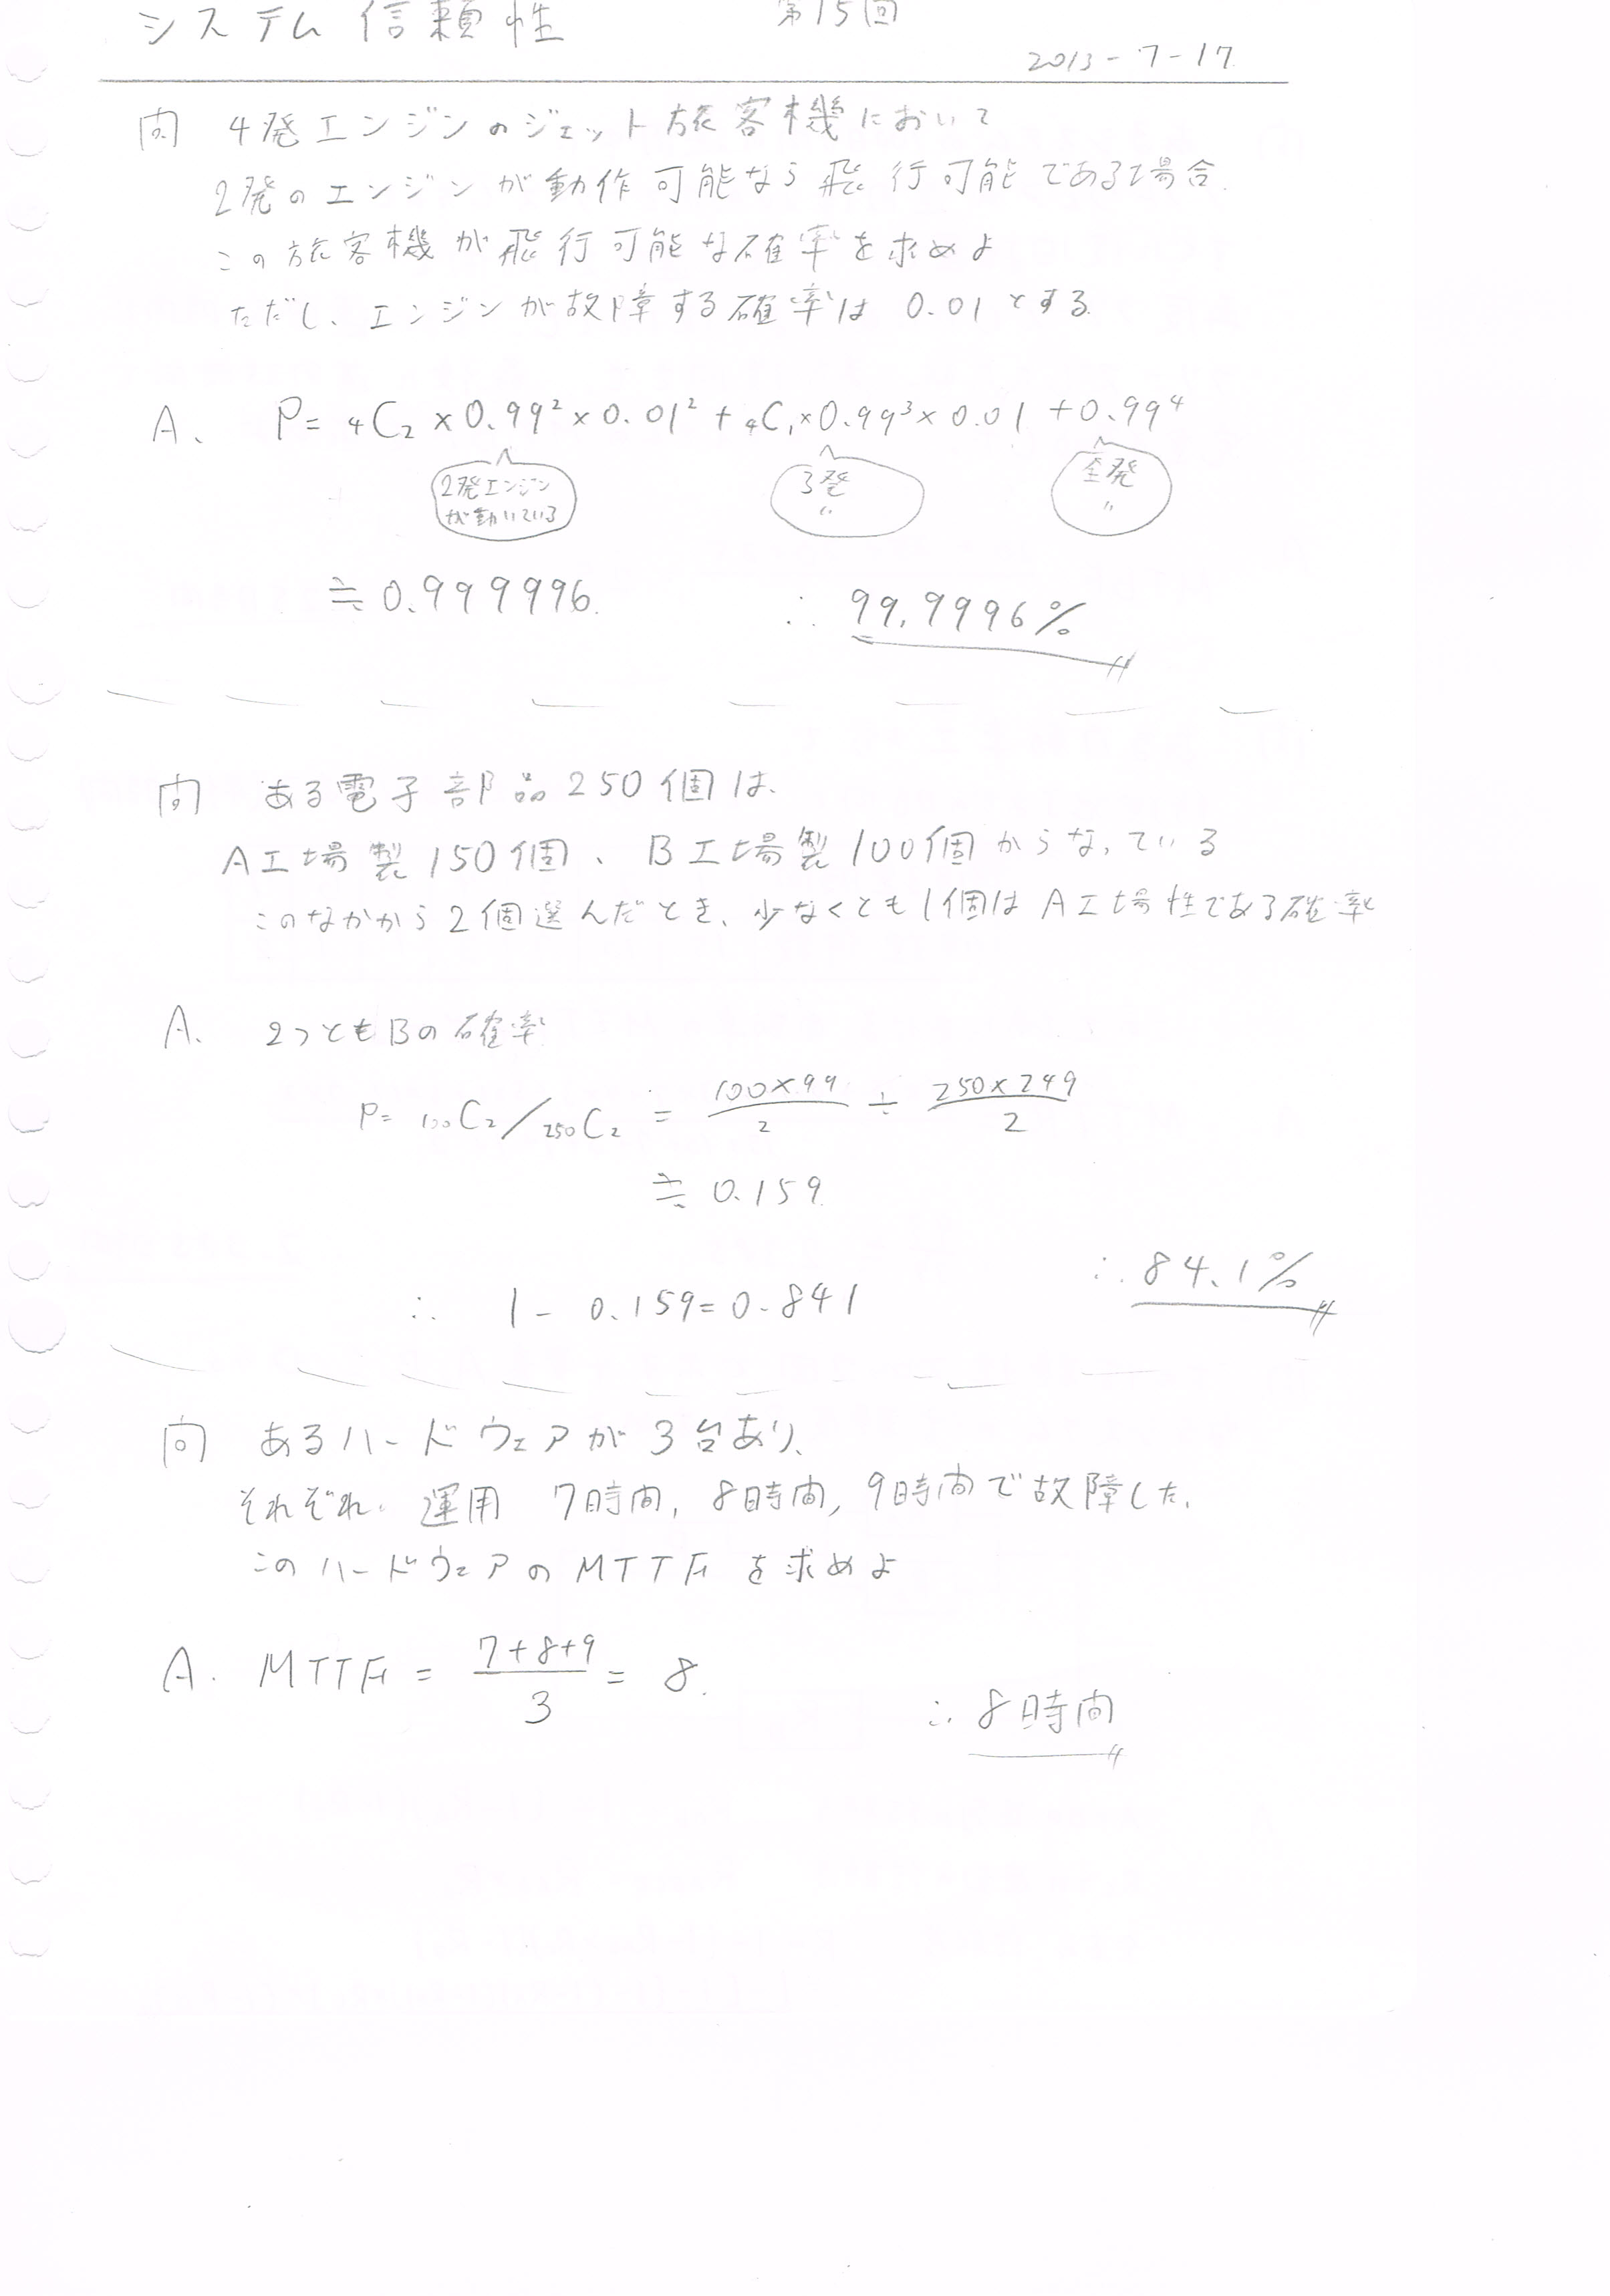 システム信頼性 第15回
2013-7-17
問 4発エンジンのジェット旅客機において
2発のエンジンが動作可能なら飛行可能である場合
この旅客機が飛行可能な確率を求めよ
ただし、エンジンが故障する確率は 0.01とする
A、 P= ₄C₂ × 0.99² × 0.01² + ₄C₁ × 0.99³ × 0.01 + 0.99⁴
2発エンジン 3発 全発
が動いている 〃 〃
≒ 0.999996 ∴ 99.9996%
問 ある電子部品250個は、
A工場製150個、B工場製100個からなっている
このなかから2個選んだとき、少なくとも1個はA工場性である確率
A. 2つともBの確率
P= ₁₀₀C₂ / ₂₅₀C₂ = 100×99/2 ÷ 250×249/2
≒ 0.159
∴ 84.1%
∴ 1 - 0.159 = 0.841
問 あるハードウェアが3台あり、
それぞれ、運用 7時間, 8時間, 9時間で故障した。
このハードウェアのMTTFを求めよ
A. MTTF = 7+8+9/3 = 8.
∴ 8時間